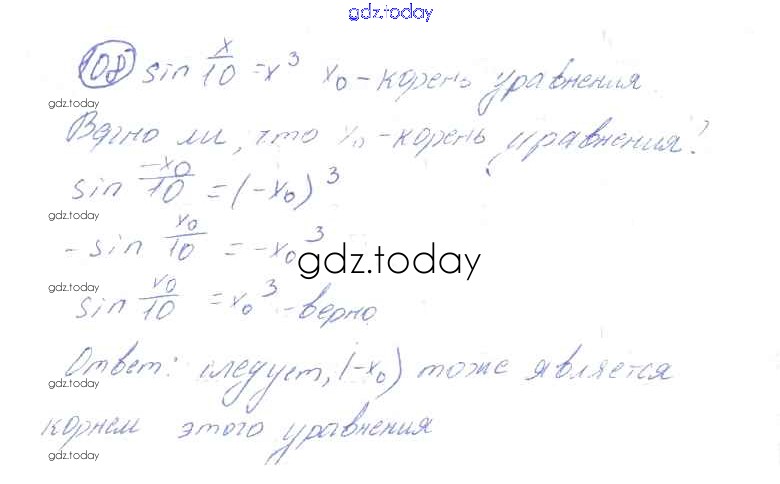 gdz.today
108 sin x/10 = x³ x₀ - корень уравнения
gdz.today
Верно ли, что x₀ - корень уравнения?
sin -x₀/10 = (-x₀)³
gdz.today
- sin x₀/10 = -x₀³
gdz.today
sin x₀/10 = x₀³ - верно
gdz.today
Ответ: следует, (-x₀) тоже является
gdz.today
корнем этого уравнения
gdz.today